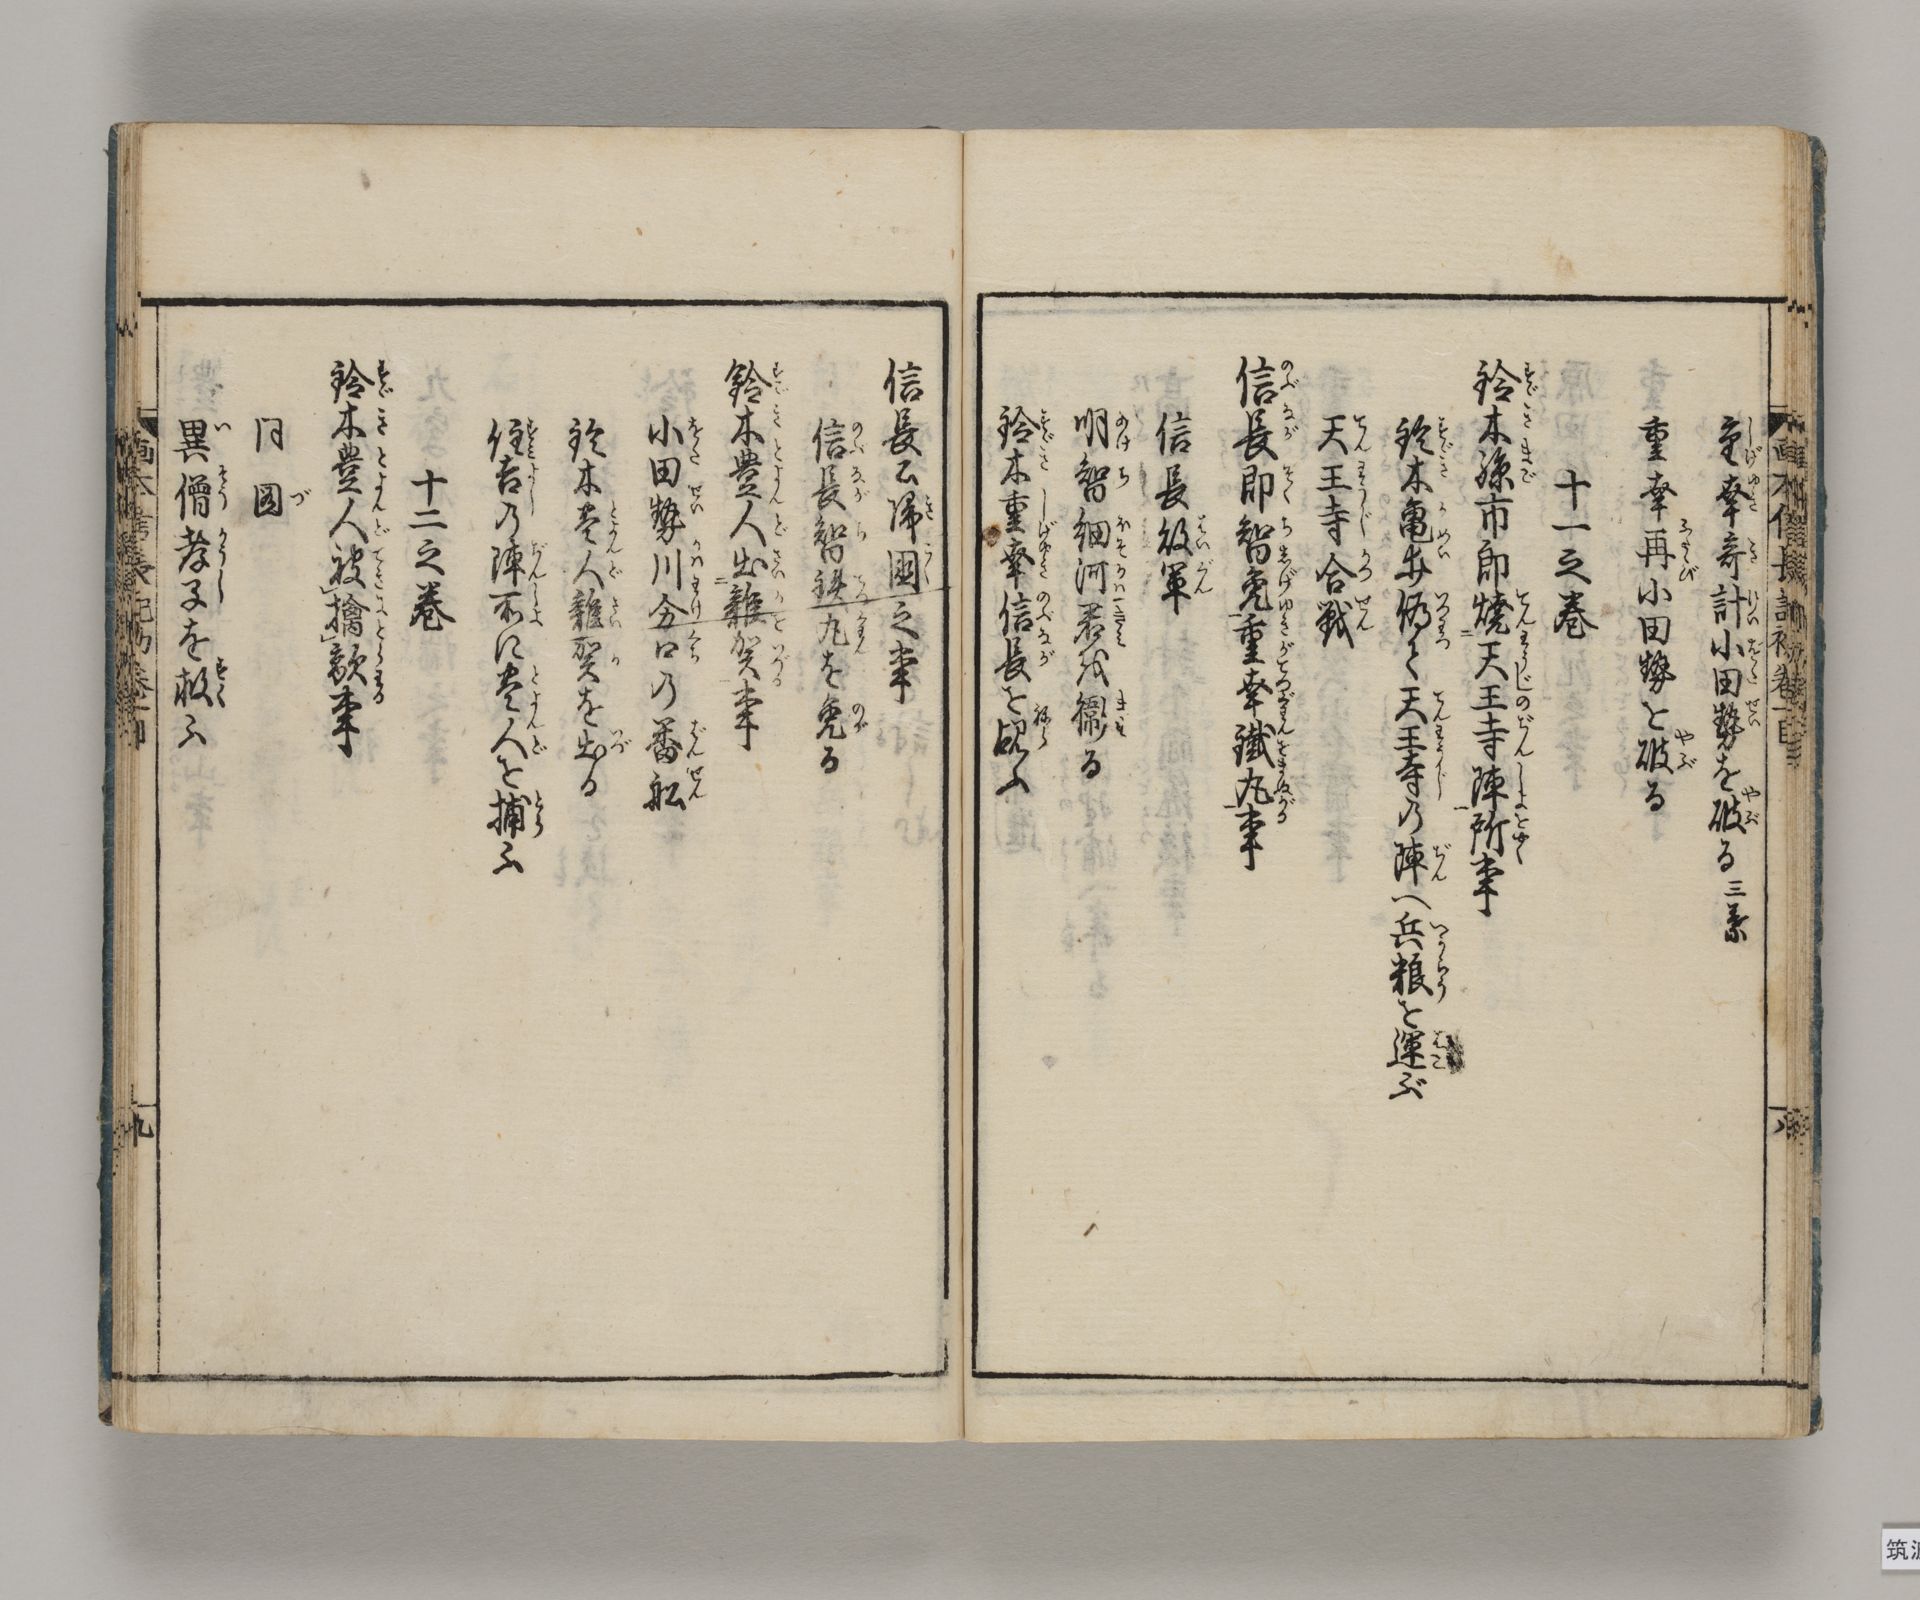 重幸奇計小田勢を破る 三葉
重幸再小田勢を破る
十一之巻
鈴木孫市郎焼天王寺陣所事
鈴木亀井偽て天王寺の陣へ兵粮を運ぶ
天王寺合戦
信長即智免重幸鐵丸事
信長敗軍
明智細河君を衛る
鈴木重幸信長を覘ふ
信長公帰國之事
信長智鉄丸を免る
鈴木豊人出雑賀事
小田勢川分口の番船
鈴木豊人雑賀を出る
住吉の陣所に豊人を捕ふ
十二之巻
鈴木豊人被擒敵事
同図
異僧孝子を救ふ
八
九
筑波